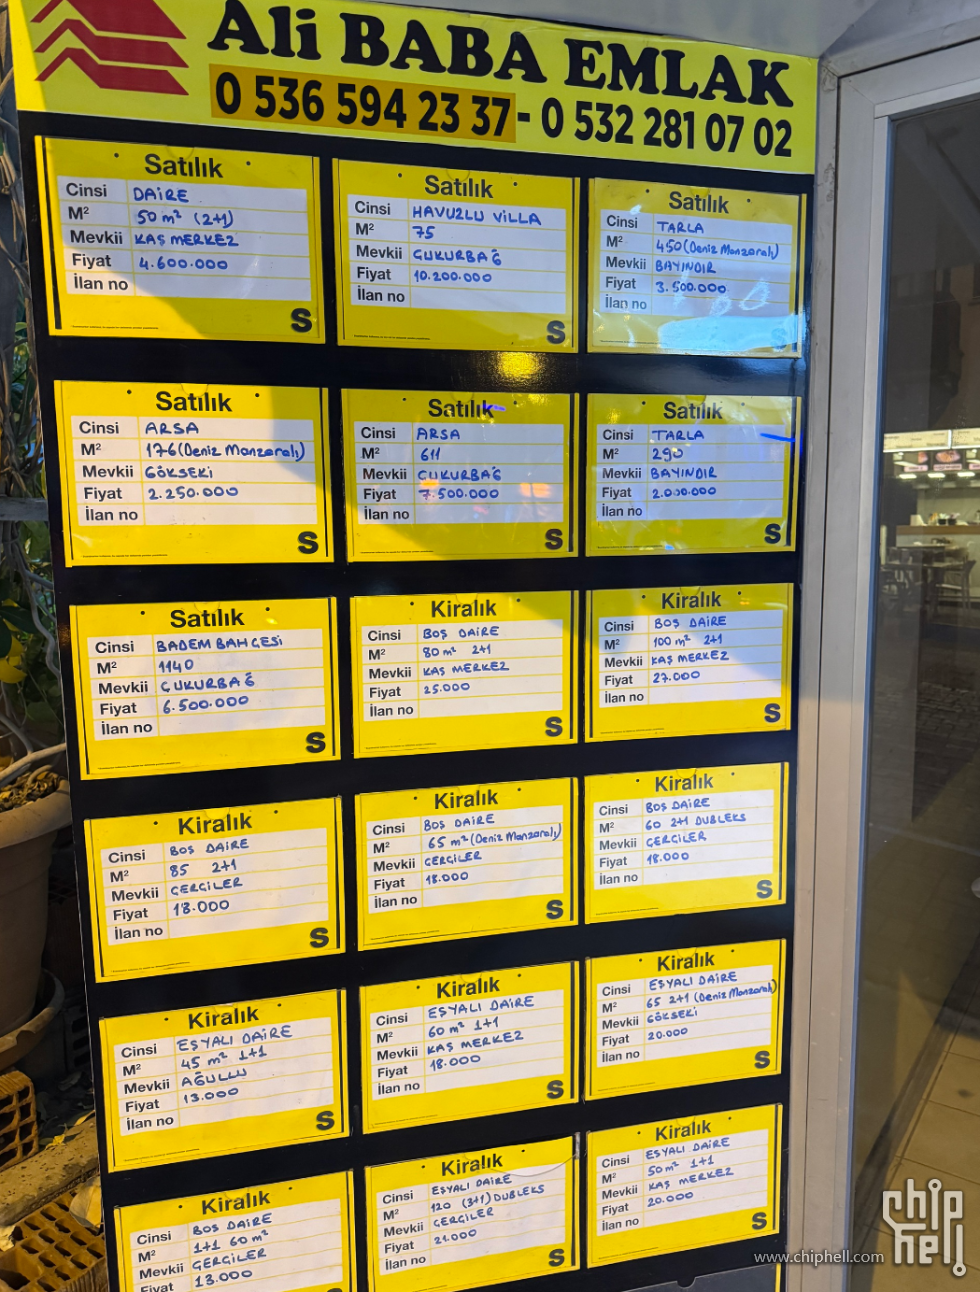 Ali BABA EMLAK
0 536 594 23 37 - 0 532 281 07 02
Satılık
Cinsi DAİRE
M² 50 m² (2+1)
Mevkii KAŞ MERKEZ
Fiyat 4.600.000
İlan no
S
Satılık
Cinsi HAVUZLU VİLLA
M² 75
Mevkii ÇUKURBAĞ
Fiyat 10.200.000
İlan no
S
Satılık
Cinsi TARLA
M² 450 (Deniz Manzaralı)
Mevkii BAYINDIR
Fiyat 3.500.000
İlan no
S
Satılık
Cinsi ARSA
M² 176 (Deniz Manzaralı)
Mevkii GÖKSEKİ
Fiyat 2.250.000
İlan no
S
Satılık
Cinsi ARSA
M² 611
Mevkii ÇUKURBAĞ
Fiyat 7.500.000
İlan no
S
Satılık
Cinsi TARLA
M² 290
Mevkii BAYINDIR
Fiyat 2.000.000
İlan no
S
Satılık
Cinsi BADEM BAHÇESİ
M² 1140
Mevkii ÇUKURBAĞ
Fiyat 6.500.000
İlan no
S
Kiralık
Cinsi BOŞ DAİRE
M² 80 m² 2+1
Mevkii KAŞ MERKEZ
Fiyat 25.000
İlan no
S
Kiralık
Cinsi BOŞ DAİRE
M² 100 m² 2+1
Mevkii KAŞ MERKEZ
Fiyat 27.000
İlan no
S
Kiralık
Cinsi BOŞ DAİRE
M² 85 2+1
Mevkii ÇERÇİLER
Fiyat 18.000
İlan no
S
Kiralık
Cinsi BOŞ DAİRE
M² 65 m² (Deniz Manzaralı)
Mevkii ÇERÇİLER
Fiyat 18.000
İlan no
S
Kiralık
Cinsi BOŞ DAİRE
M² 60 2+1 DUBLEKS
Mevkii ÇERÇİLER
Fiyat 18.000
İlan no
S
Kiralık
Cinsi EŞYALI DAİRE
M² 45 m² 1+1
Mevkii AĞULLU
Fiyat 13.000
İlan no
S
Kiralık
Cinsi EŞYALI DAİRE
M² 60 m² 1+1
Mevkii KAŞ MERKEZ
Fiyat 18.000
İlan no
S
Kiralık
Cinsi EŞYALI DAİRE
M² 65 2+1 (Deniz Manzaralı)
Mevkii GÖKSEKİ
Fiyat 20.000
İlan no
S
Kiralık
Cinsi BOŞ DAİRE
M² 1+1 60 m²
Mevkii ÇERÇİLER
Fiyat 13.000
Kiralık
Cinsi EŞYALI DAİRE
M² 120 (3+1) DUBLEKS
Mevkii ÇERÇİLER
Fiyat 21.000
İlan no
S
Kiralık
Cinsi EŞYALI DAİRE
M² 50 m² 1+1
Mevkii KAŞ MERKEZ
Fiyat 20.000
İlan no
S
www.chiphell.com
chip
hell